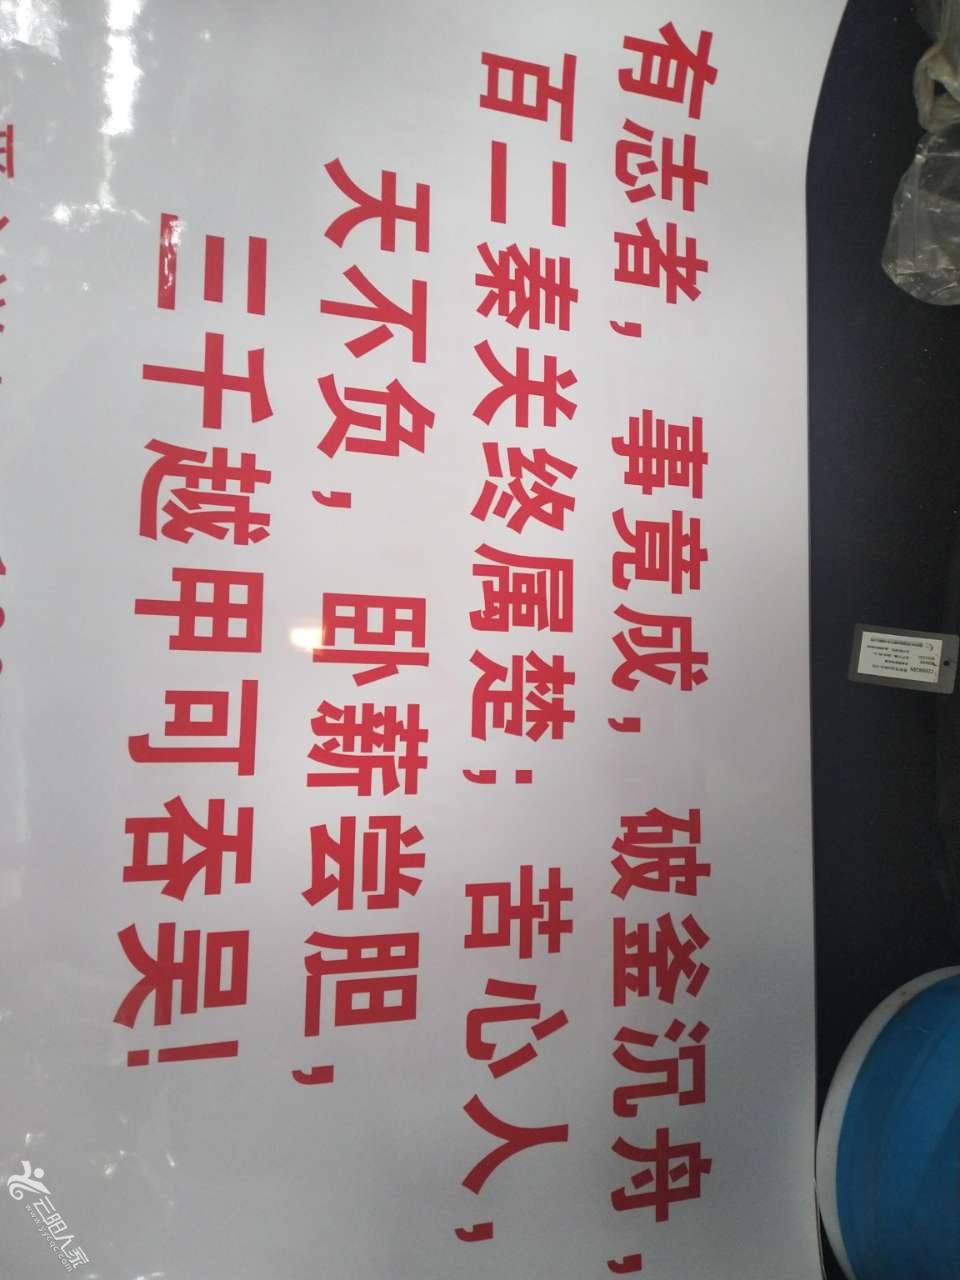 有志者，事竟成，破釜沉舟，
百二秦关终属楚；苦心人，
天不负，卧薪尝胆，
三千越甲可吞吴！
云阳人家
www.yycqc.com